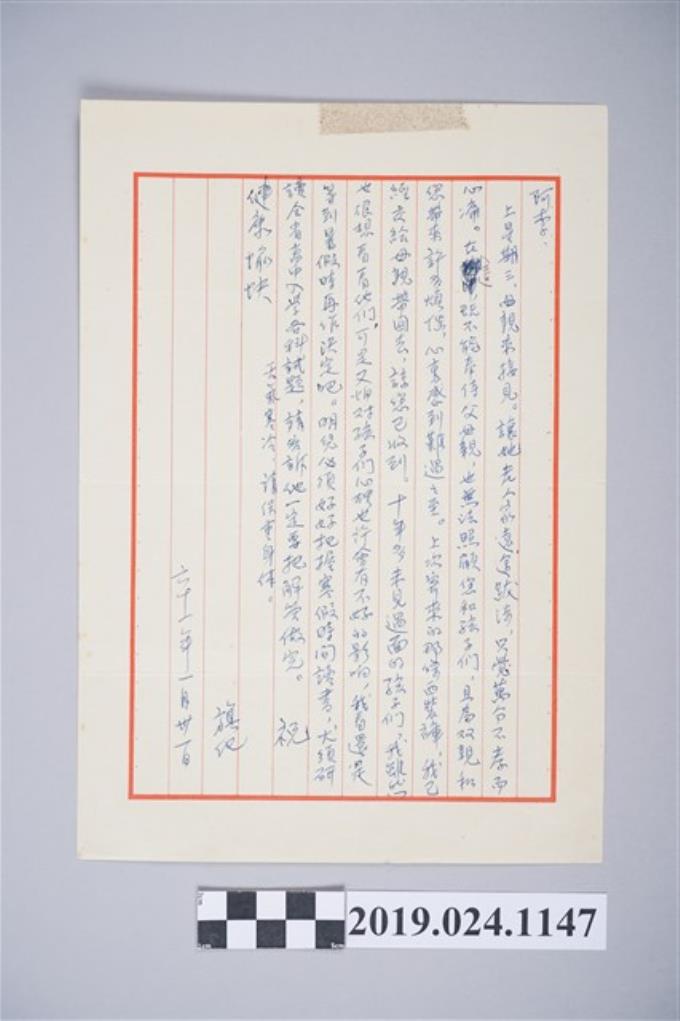 阿李、
上星期三、母親來接見。讓她老人家遠途跋涉，只覺萬分不孝而
心痛。在這既不能奉侍父母親，也無法照顧您和孩子們，且為双親和
您帶來許多煩惱，心裏感到難過之至。上次寄來的那條西裝褲，我已
經交給母親帶回去，諒您已收到。十年多未見過面的孩子們，我雖然
也很想看看他們，可是又怕对孩子們心裡也許會有不好的影响，我看還是
等到暑假時再作決定吧。明兒必須好好把握寒假時间讀書，尤須研
讀全省高中入學各科試題，請告訴他一定要把解答做完。
天氣寒冷、請保重身体。 祝
健康愉快
旗化
六十一年一月卅一日
2019.024.1147